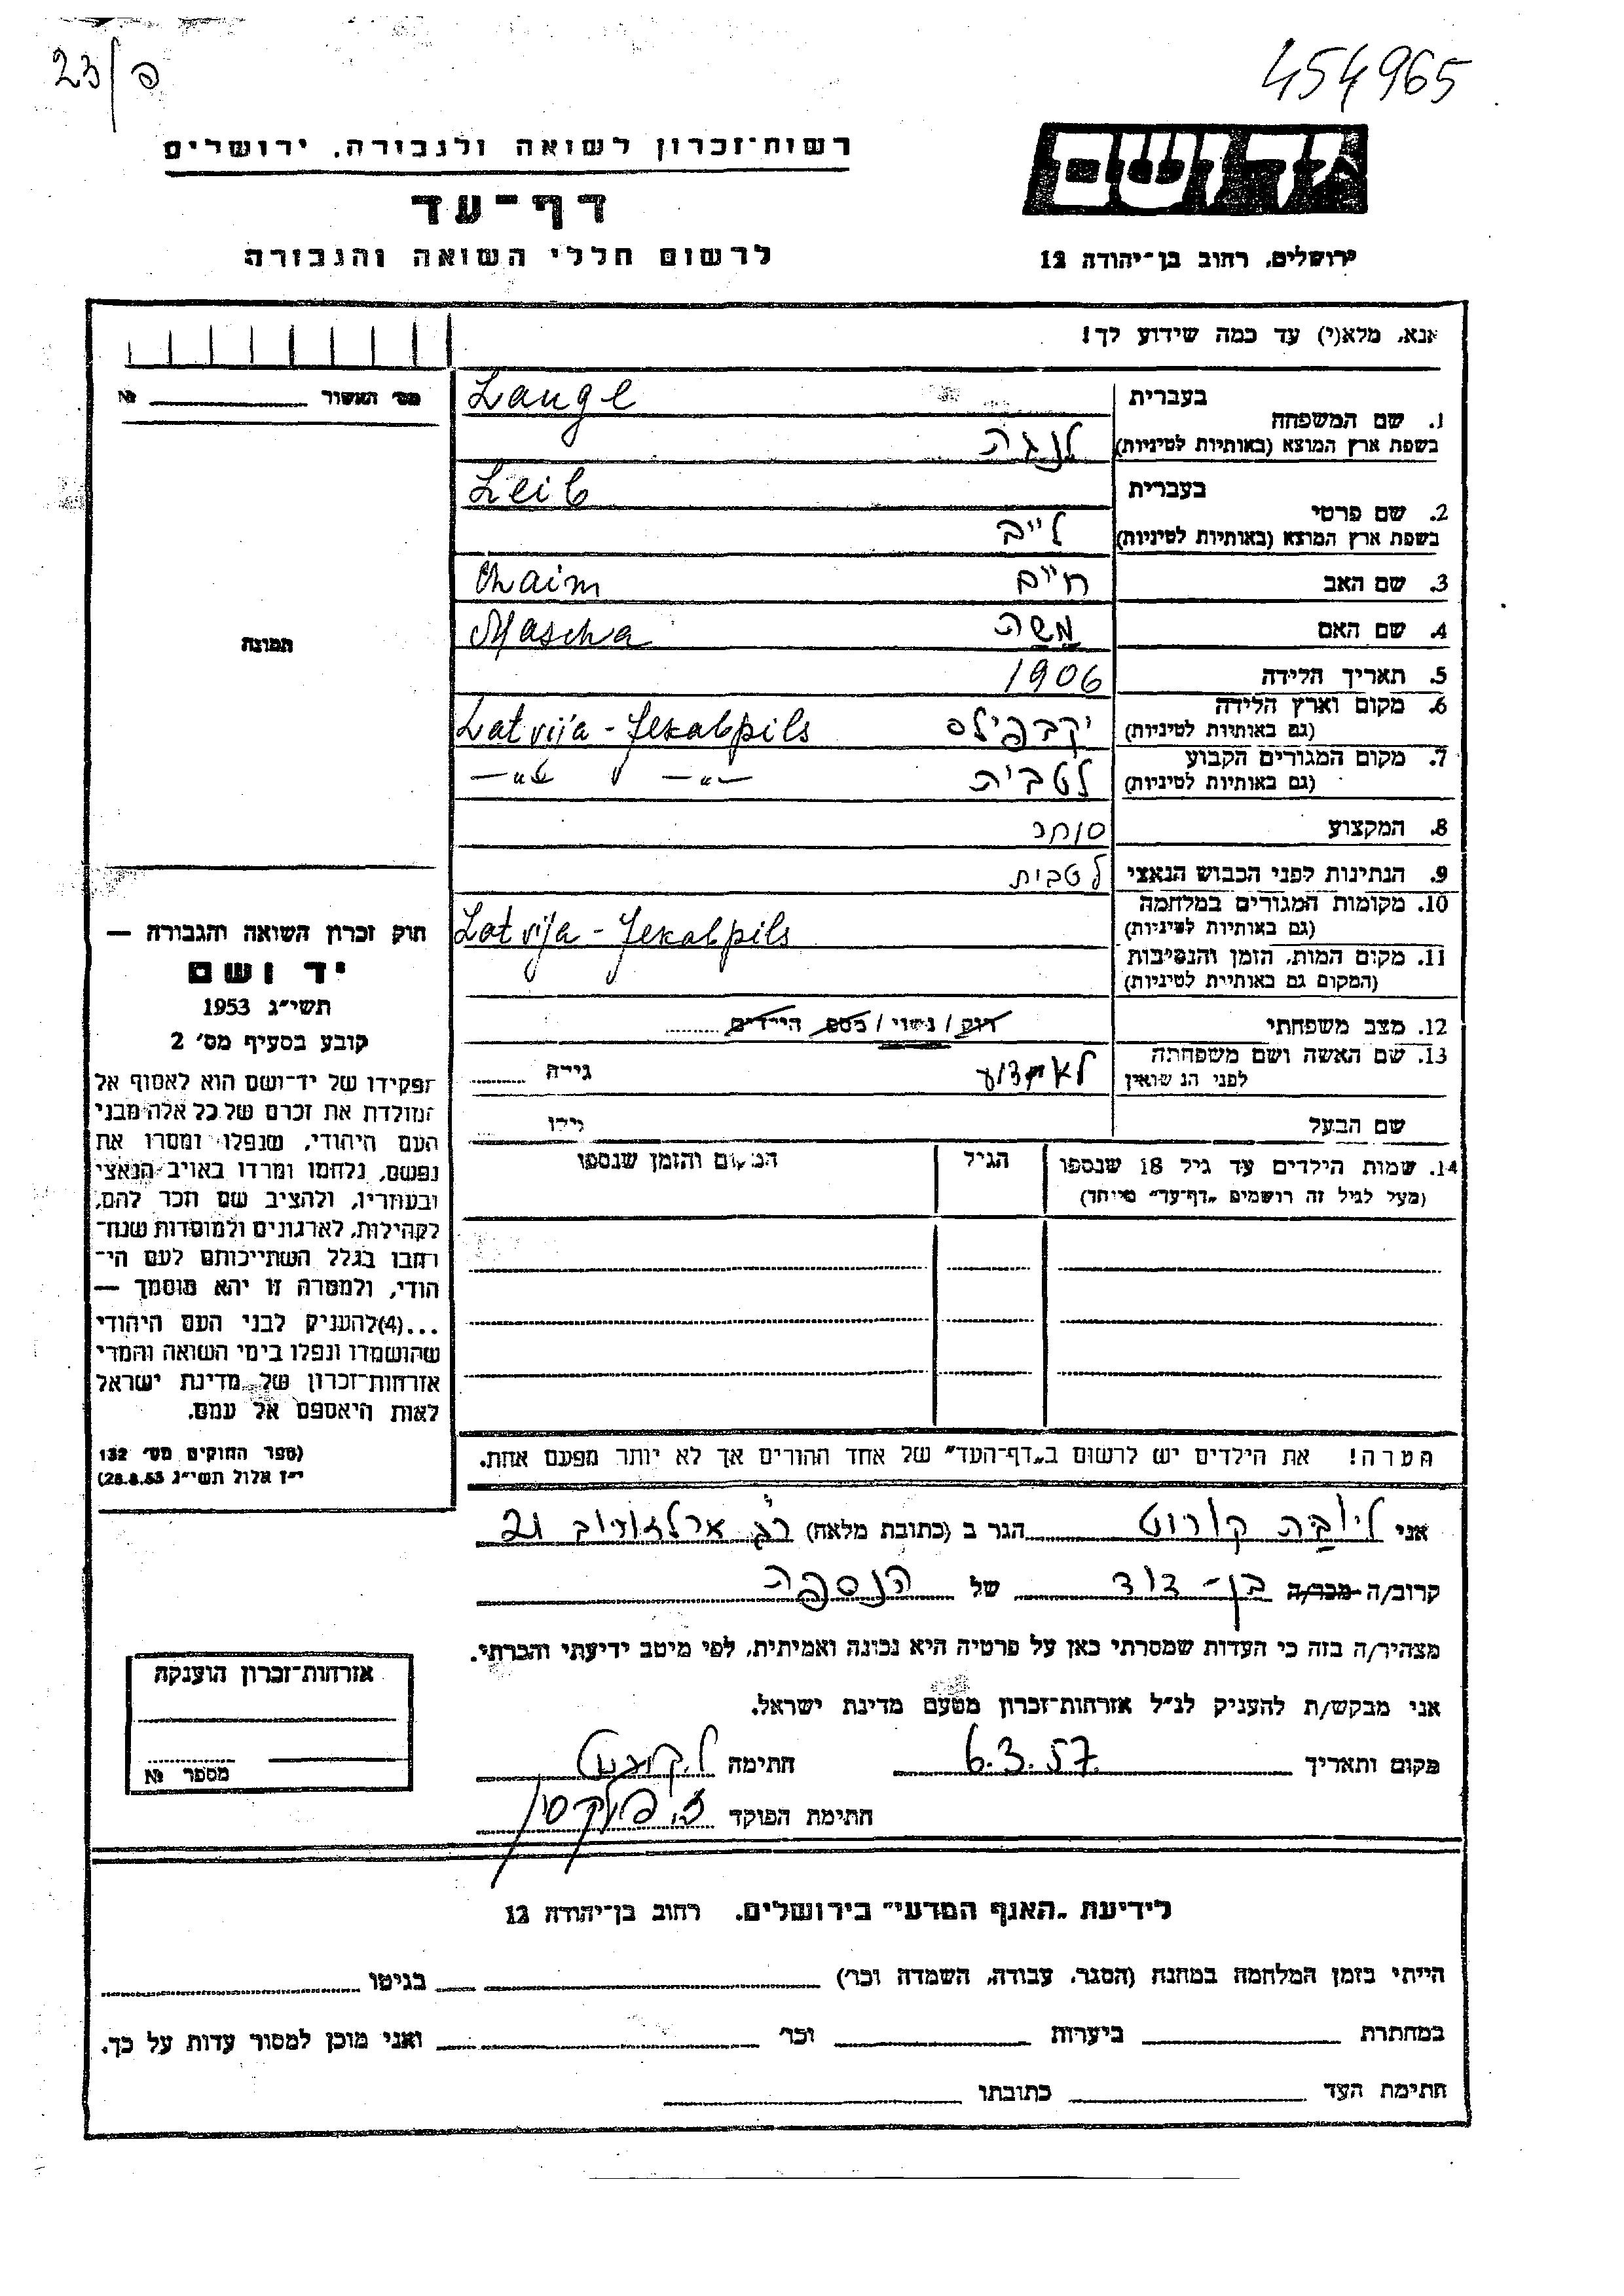 23/פ
454965
רשות־זכרון לשואה ולגבורה, ירושלים
דף־עד
לרשום חללי השואה והגבורה
יד ושם
ירושלים, רחוב בן־יהודה 12
אנא, מלא(י) עד כמה שידוע לך!
מס׳ האשור № 
1. שם המשפחה בעברית Lange
בשפת ארץ המוצא (באותיות לטיניות) לנגה
2. שם פרטי בעברית Leib
בשפת ארץ המוצא (באותיות לטיניות) לייב
3. שם האב חיים Chaim
4. שם האם משה Mascha
5. תאריך הלידה 1906
6. מקום וארץ הלידה (גם באותיות לטיניות) יקבפילס Latvija - Jekabpils
7. מקום המגורים הקבוע (גם באותיות לטיניות) לטבית —״— —״—
8. המקצוע סוחר
9. הנתינות לפני הכבוש הנאצי לטבית
10. מקומות המגורים במלחמה (גם באותיות לטיניות) Latvija - Jekabpils
11. מקום המות, הזמן והנסיבות
(המקום גם באותיות לטיניות)
12. מצב משפחתי רוק / נשוי / מספר הילדים
13. שם האשה ושם משפחתה לפני הנשואין לא ידוע גילה
שם הבעל גילו
14. שמות הילדים עד גיל 18 שנספו הגיל המקום והזמן שנספו
(מעל לגיל זה רושמים „דף־עד״ מיוחד)
תמונה
חוק זכרון השואה והגבורה —
יד ושם
תשי״ג 1953
קובע בסעיף מס׳ 2
תפקידו של יד־ושם הוא לאסוף אל
המולדת את זכרם של כל אלה מבני
העם היהודי, שנפלו ומסרו את
נפשם, נלחמו ומרדו באויב הנאצי
ובעוזריו, ולהציב שם וזכר להם,
לקהילות, לארגונים ולמוסדות שנח־
רבו בגלל השתייכותם לעם הי־
הודי, ולמטרה זו יהא מוסמך —
...(4)להעניק לבני העם היהודי
שהושמדו ונפלו בימי השואה והמרי
אזרחות־זכרון של מדינת ישראל
לאות היאספם אל עמם.
(ספר החוקים מס׳ 132
י״ז אלול תשי״ג 28.8.53)
הערה! את הילדים יש לרשום ב„דף־העד״ של אחד ההורים אך לא יותר מפעם אחת.
אני ליובה קורט הגר ב (כתובת מלאה) רח׳ ארלוזורוב 21
קרוב/ה מכר/ה בן־דוד של הנספה
מצהיר/ה בזה כי העדות שמסרתי כאן על פרטיה היא נכונה ואמיתית, לפי מיטב ידיעתי והכרתי.
אני מבקש/ת להעניק לנ״ל אזרחות־זכרון מטעם מדינת ישראל.
מקום ותאריך 6.3.57 חתימה ל. קורט
חתימת הפוקד
אזרחות־זכרון הוענקה
מספר №
לידיעת „האגף המדעי״ בירושלים, רחוב בן־יהודה 12
הייתי בזמן המלחמה במחנה (הסגר, עבודה, השמדה וכו׳) בגיטו
במחתרת ביערות וכו׳ ואני מוכן למסור עדות על כך.
חתימת העד כתובתו